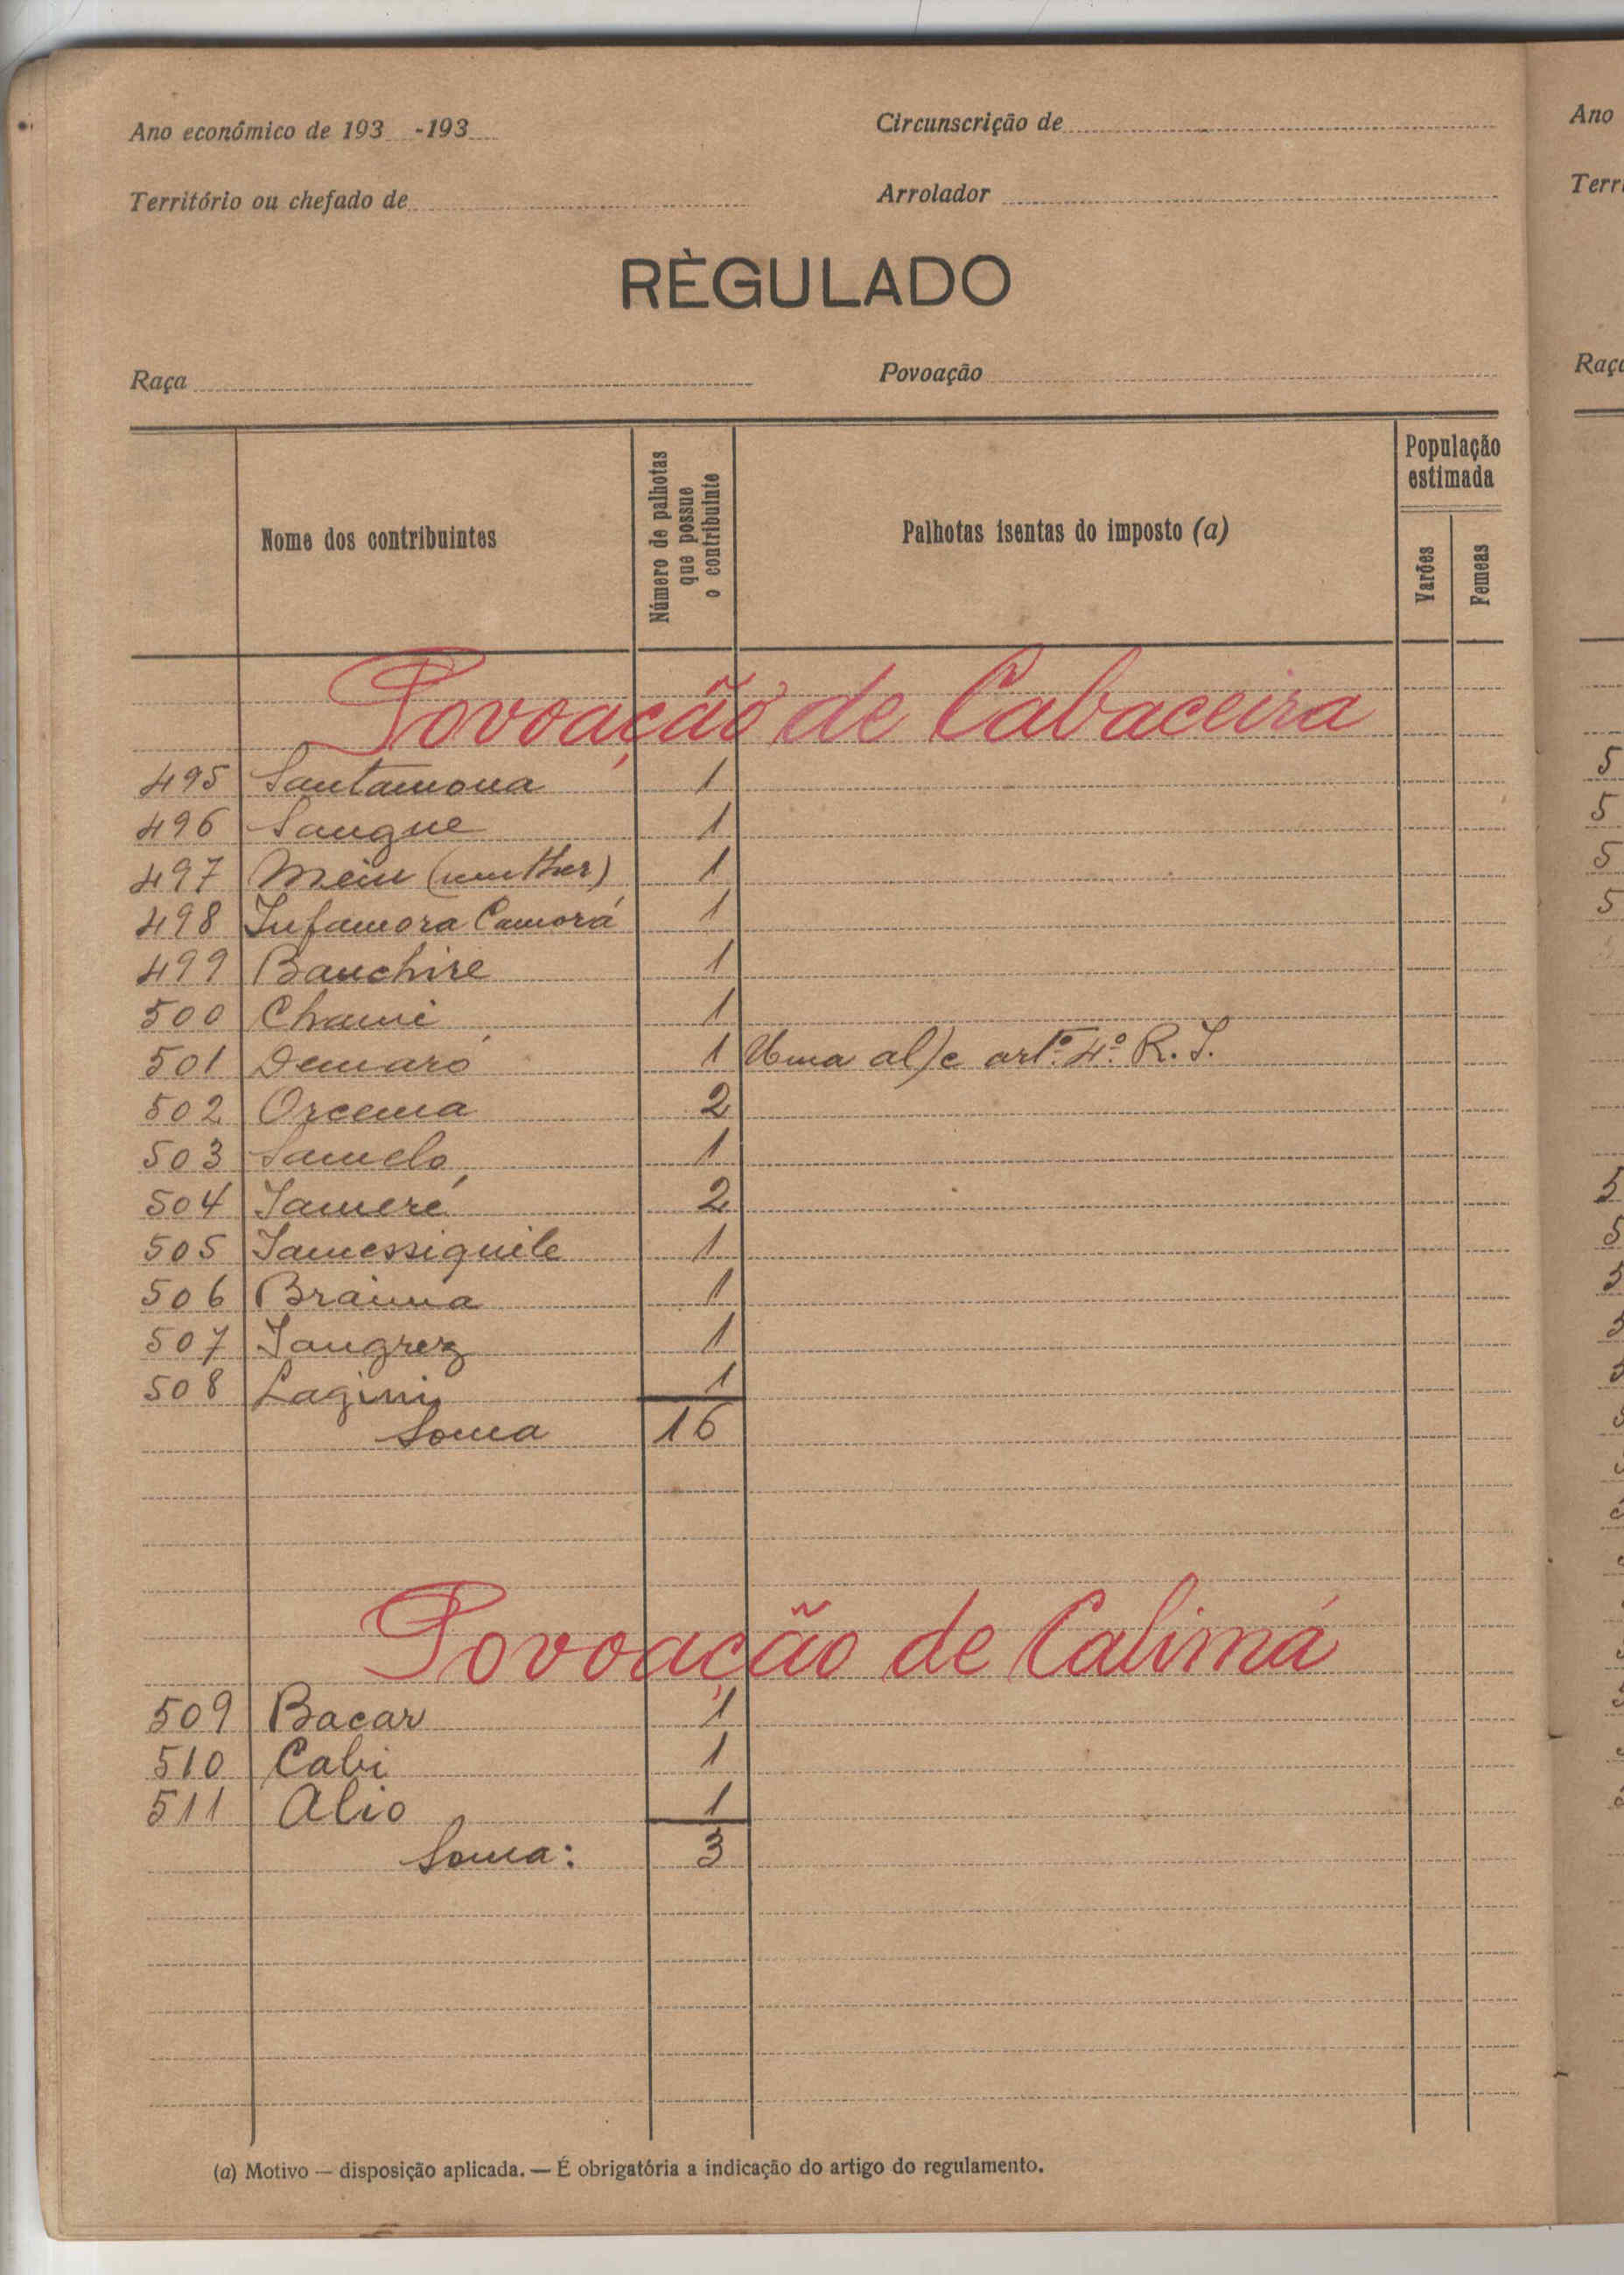 Ano económico de 193 -193
Circunscrição de
Território ou chefado de
Arrolador
RÈGULADO
Raça
Povoação
Nome dos contribuintes
Número de palhotas
que possue
o contribuinte
Palhotas isentas do imposto (a)
População
estimada
Varões
Femeas
Povoação de Cabaceira
495 Santamona 1
496 Sangue 1
497 (mulher) 1
498 Infamora Camorá 1
499 Banchire 1
500 Chami 1
501 Demaró 1 Uma al)c artº. 4º. R. I.
502 Orcema 2
503 Samelo 1
504 Iameré 2
505 Iamessiquile 1
506 Braima 1
507 1
508 1
Soma 16
Povoação de Calimá
509 Bacar 1
510 Cabi 1
511 Alio 1
Soma: 3
(a) Motivo — disposição aplicada. — É obrigatória a indicação do artigo do regulamento.
Ano
Terri
Raça